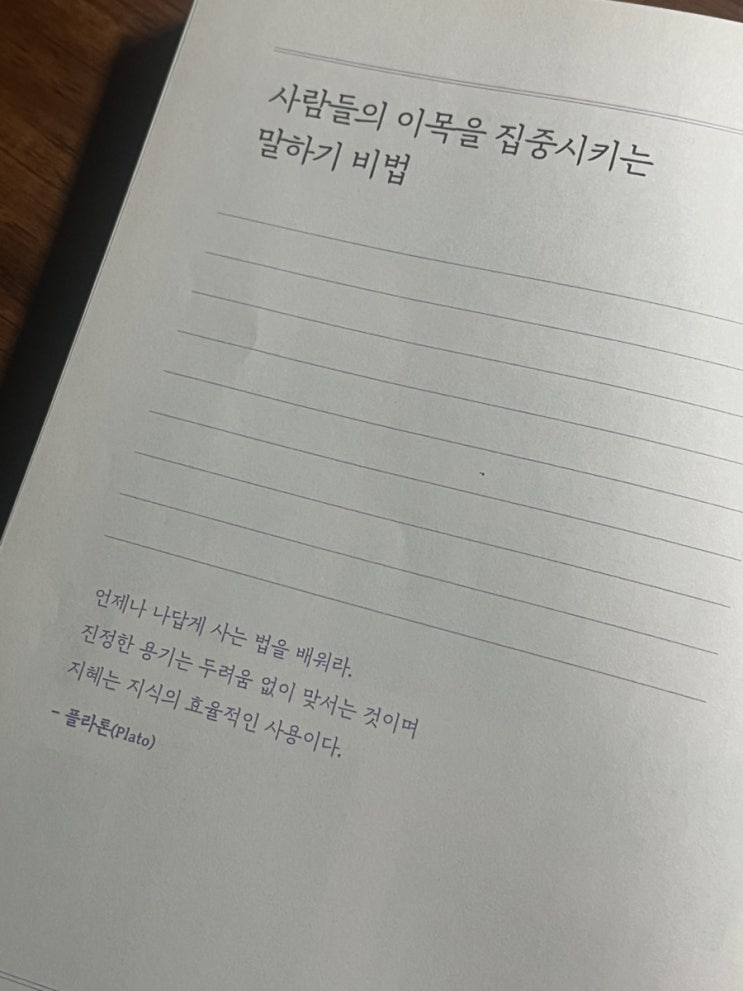 사람들의 이목을 집중시키는
말하기 비법
언제나 나답게 사는 법을 배워라.
진정한 용기는 두려움 없이 맞서는 것이며
지혜는 지식의 효율적인 사용이다.
- 플라톤(Plato)